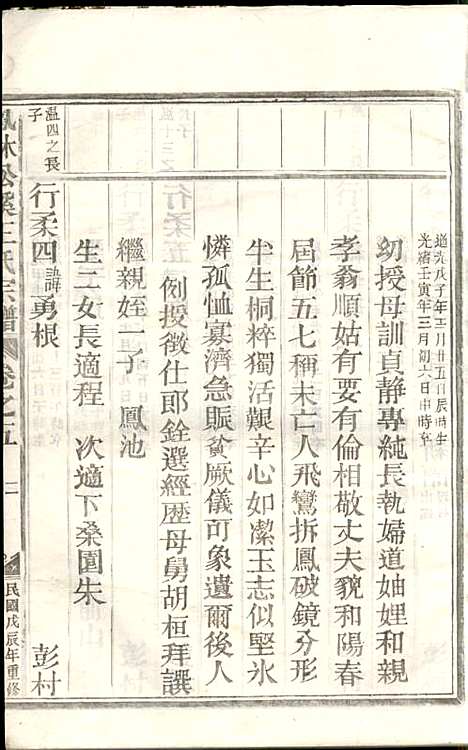 道光戊子年五月廿五日辰時生
光緒壬寅年三月初六日申時卒
幼授母訓貞靜專純長執婦道妯娌和親
孝翁順姑有要有倫相敬丈夫貌和陽春
屆節五七稱未亡人飛鸞拆鳳破鏡分形
半生桐粹獨活艱辛心如潔玉志似堅氷
憐孤恤寡濟急賑貧厥儀可象遺爾後人
例授徵仕郎銓選經歷母舅胡桓拜譔
繼親姪一子 鳳池
生二女長適程 次適下桑園朱
溫四之長子
行柔四 諱勇根 彭村
鳳林松溪王氏宗譜 卷之五 二 民國戊辰年重修